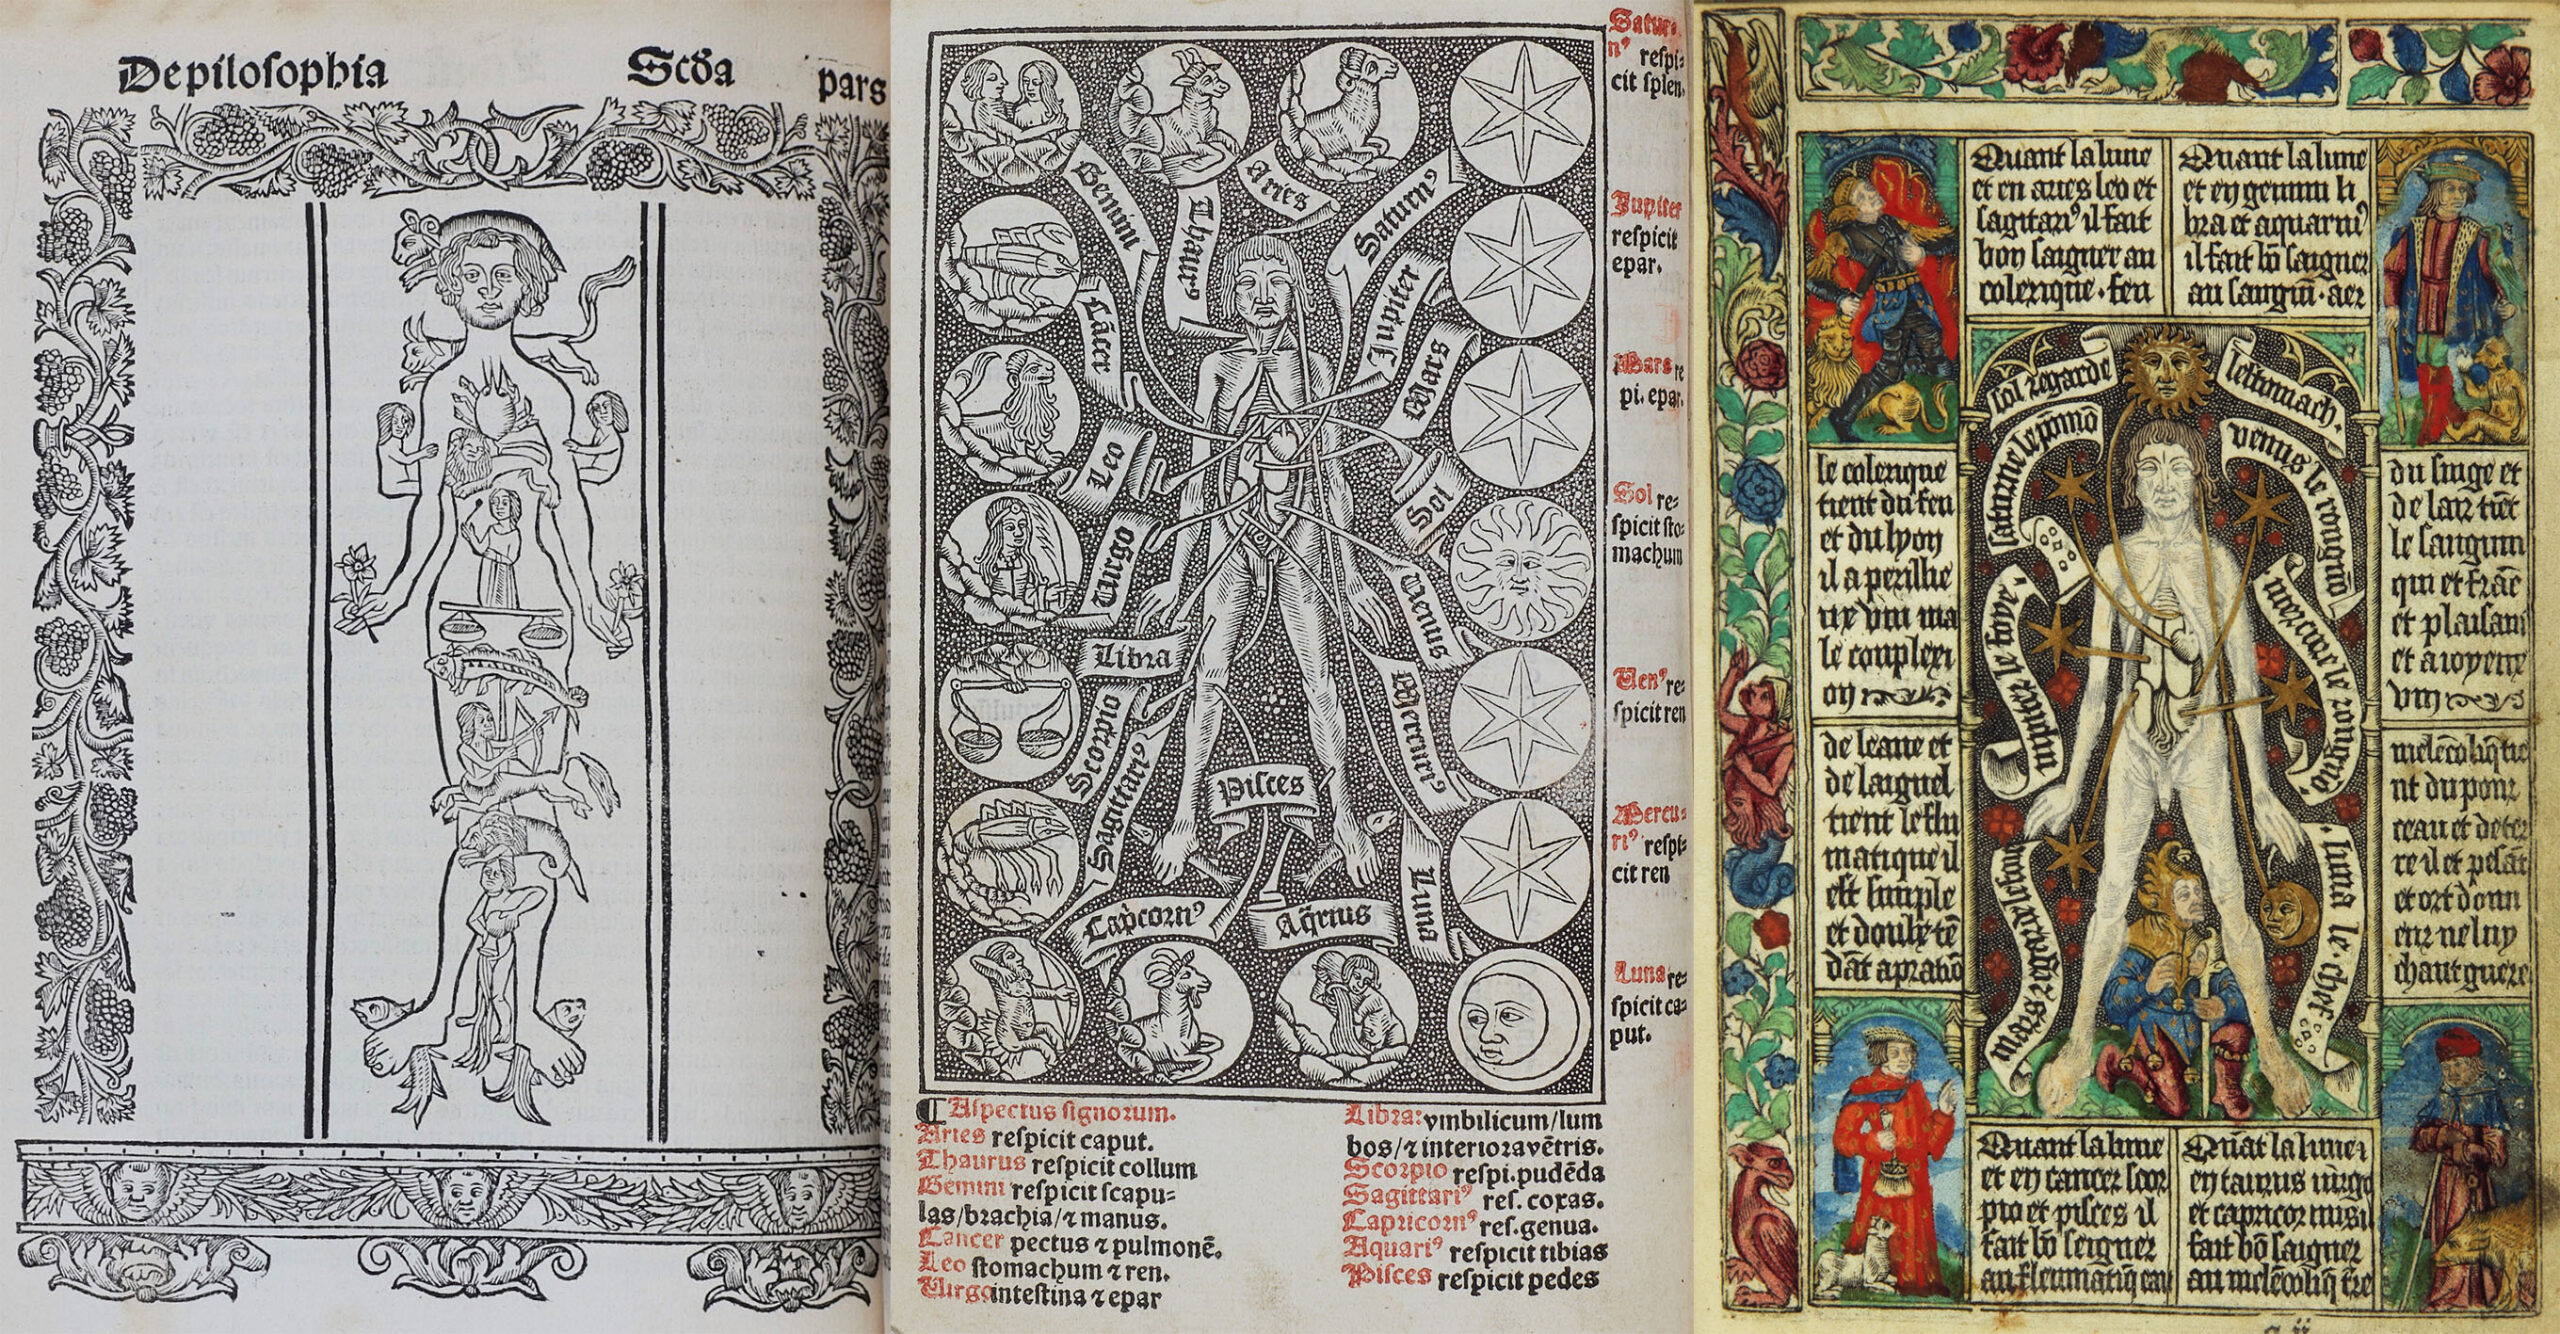 De pilosophia Scđa pars
Gemini
Thaurꝰ
Aries
Saturnꝰ
Cācer
Jupiter
Leo
Mars
Virgo
Sol
Libra
Venus
Scorpio
Mercuriꝰ
Sagittariꝰ
Pisces
Luna
Capꝛicornꝰ
Aq̄rius
Satur⸗
nꝰ respi⸗
cit splen.
Jupiter
respicit
epar.
Mars re
pi. epar.
Sol re⸗
spicit sto⸗
machum
Venꝰ re⸗
spicit ren
Mercu⸗
riꝰ respi⸗
cit ren
Luna re⸗
spicit ca⸗
put.
¶ Aspectus signorum.
Aries respicit caput.
Thaurus respicit collum
Gemini respicit scapu⸗
las/brachia/⁊ manus.
Cancer pectus ⁊ pulmonē.
Leo stomachum ⁊ ren.
Virgo intestina ⁊ epar
Libra: vmbilicum/lum
bos/⁊ interiora vētris.
Scorpio respi. pudēda
Sagittariꝰ res. coxas.
Capricornꝰ res. genua.
Aquariꝰ respicit tibias
Pisces respicit pedes
Quant la lune
et en aries leo et
sagitariꝰ il fait
bon saigner au
colerique · feu
Quant la lune
et en gemini li
bra et aquariuꝰ
il fait bō saigner
au sanguī · aer
sol regarde
lestomach ·
saturne le pōmō
venus le rongnō
mercure le rongnō
mars regarde le foye
luna le · chef
le colerique
tient du feu
et du lyon
il a perillie
ux vin ma
le conplexi
on
du singe et
de lair tiēt
le sanguin
qui et frāc
et plaisant
et a ioyeux
vin
de leaue et
de laignel
tient le flu
matique il
est simple
et doulx tē
dāt a pratiō
melēcoliq̄ tie
nt du pour
ceau et de ter
re il et pesāt
et ort donn
eur ne luy
chaut guere
Quant la lune
et en cancer scor
pio et pisces il
fait bō seigner
au fleumatiq̄ eau
Quāt la lune i
en taurus uirgo
et capricornus il
fait bō saigner
au melēcoliq̄ tre
c ii